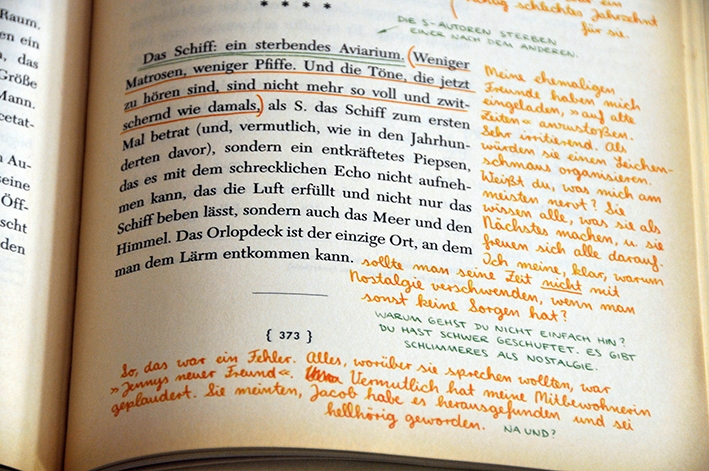 Raum.
en ein
n, das
Größe
Mann.
cetat-
n Au-
seine
Öff-
scht
den
* * * *
schlechtes Jahrzehnt
für sie.
DIE S-AUTOREN STERBEN
EINER NACH DEM ANDEREN.
Das Schiff: ein sterbendes Aviarium. (Weniger
Matrosen, weniger Pfiffe. Und die Töne, die jetzt
zu hören sind, sind nicht mehr so voll und zwit-
schernd wie damals,) als S. das Schiff zum ersten
Mal betrat (und, vermutlich, wie in den Jahrhun-
derten davor), sondern ein entkräftetes Piepsen,
das es mit dem schrecklichen Echo nicht aufneh-
men kann, das die Luft erfüllt und nicht nur das
Schiff beben lässt, sondern auch das Meer und den
Himmel. Das Orlopdeck ist der einzige Ort, an dem
man dem Lärm entkommen kann.
Meine ehemaligen
Freunde haben mich
eingeladen, »auf alte
Zeiten« anzustoßen.
Sehr irritierend. Als
würden sie einen Leichen-
schmaus organisieren.
Weißt du, was mich am
meisten nervt? Sie
wissen alle, was sie als
Nächstes machen, u sie
freuen sich alle darauf.
Ich meine, klar, warum
sollte man seine Zeit nicht mit
Nostalgie verschwenden, wenn man
sonst keine Sorgen hat?
WARUM GEHST DU NICHT EINFACH HIN?
DU HAST SCHWER GESCHUFTET. ES GIBT
SCHLIMMERES ALS NOSTALGIE.
{ 373 }
So, das war ein Fehler. Alles, worüber sie sprechen wollten, war
»Jennys neuer Freund«. Vermutlich hat meine Mitbewohnerin
geplaudert. Sie meinten, Jacob habe es herausgefunden und sei
hellhörig geworden.
NA UND?